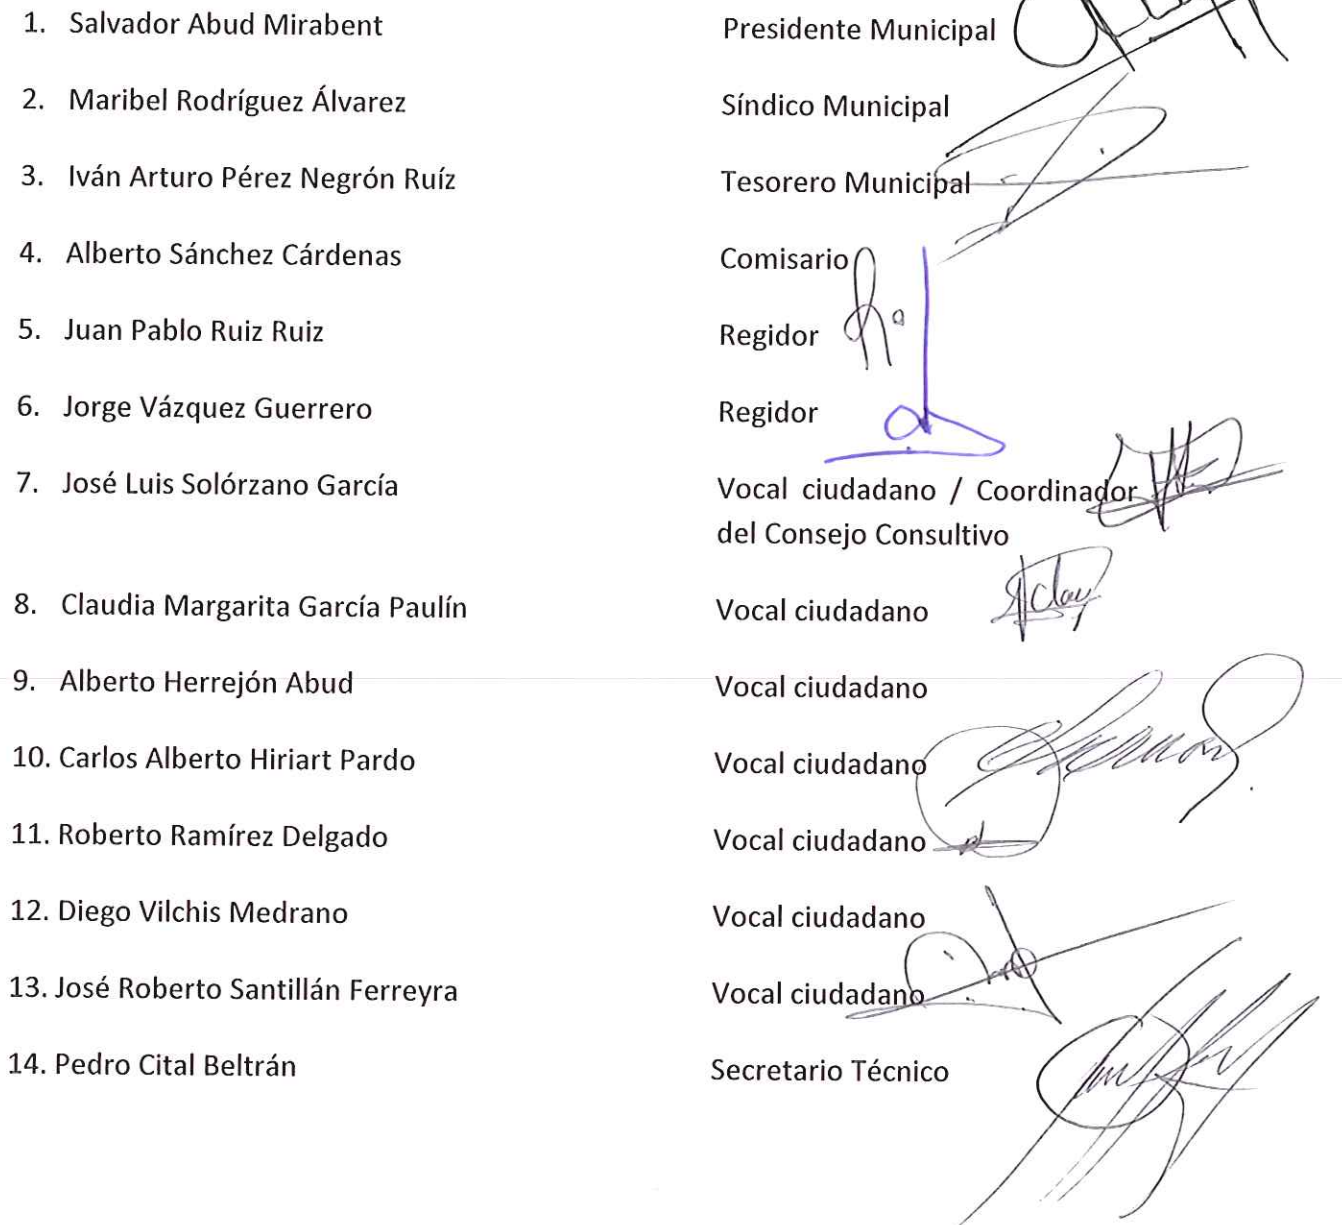 1. Salvador Abud Mirabent Presidente Municipal
2. Maribel Rodríguez Álvarez Síndico Municipal
3. Iván Arturo Pérez Negrón Ruíz Tesorero Municipal
4. Alberto Sánchez Cárdenas Comisario
5. Juan Pablo Ruiz Ruiz Regidor
6. Jorge Vázquez Guerrero Regidor
7. José Luis Solórzano García Vocal ciudadano / Coordinador
del Consejo Consultivo
8. Claudia Margarita García Paulín Vocal ciudadano
9. Alberto Herrejón Abud Vocal ciudadano
10. Carlos Alberto Hiriart Pardo Vocal ciudadano
11. Roberto Ramírez Delgado Vocal ciudadano
12. Diego Vilchis Medrano Vocal ciudadano
13. José Roberto Santillán Ferreyra Vocal ciudadano
14. Pedro Cital Beltrán Secretario Técnico